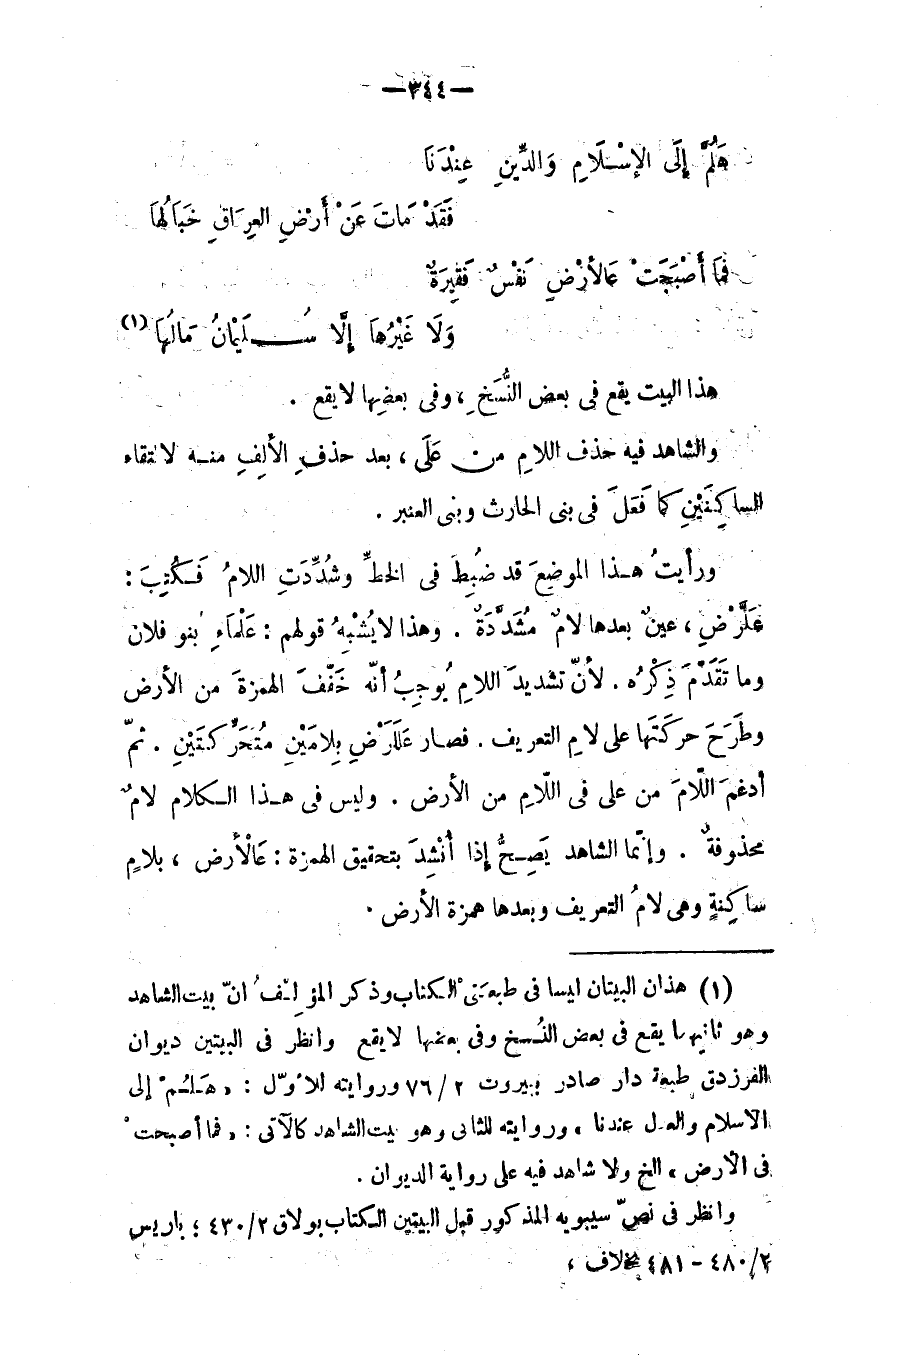 —٣٤٤—
هَلُمَّ إِلَى الإسْلَامِ وَالدِّينِ عِنْدَنَا
فَقَدْ مَاتَ عَنْ أَرْضِ العِرَاقِ خَبَالُهَا
فَمَا أَصْبَحَتْ عَالأَرْضِ نَفْسٌ فَقِيرَةٌ
وَلَا غَيْرُهَا إِلَّا سُلَيْمَانُ مَالُهَا (١)
هذا البيت يقع فى بعض النُّسَخِ ، وفى بعضِها لا يقع .
والشاهد فيه حذف اللامِ من عَلَى ، بعد حذفِ الألِفِ منه لالتقاء
الساكِنَيْنِ كما فَعَلَ فى بنى الحارث وبنى العنبر .
ورأيتُ هذا الموضِعَ قد ضُبِطَ فى الخطِّ وشُدِّدَتِ اللامُ فَكُتِبَ :
عَلَّرْضِ ، عينٌ بعدها لامٌ مُشَدَّدَةٌ . وهذا لا يُشْبِهُ قولهم : عَلْمَاءِ بنو فلان
وما تَقَدَّمَ ذِكْرُه . لأنّ تشديدَ اللامِ يُوجِبُ أنّه خَفّفَ الهمزةَ من الأرض
وطَرَحَ حركَتَها على لامِ التعريف . فصار عَلَلَرْضِ بِلامَيْنِ مُتَحَرِّكَتَيْنِ . ثمّ
أدغمَ اللّامَ من على فى اللّامِ من الأرض . وليس فى هذا الكلام لامٌ
محذوفةٌ . وإنّما الشاهد يَصِحُّ إذا أُنْشِدَ بتحقيق الهمزة : عَالْأرض ، بلامٍ
ساكِنةٍ وهى لامُ التعريف وبعدها همزة الأرض .
(١) هذان البيتان ليسا فى طبعتى الكتاب وذكر المؤلِّفُ انّ بيت الشاهد
وهو ثانيهما يقع فى بعض النُسخ وفى بعضها لا يقع وانظر فى البيتين ديوان
الفرزدق طبعة دار صادر ببيروت ٢/٧٦ وروايته للأوّل : « هَلُمّ إلى
الاسلام والعدل عندنا » وروايته للثانى وهو بيت الشاهد كالآتى : « فما أصبحتْ
فى الأرض » الخ ولا شاهد فيه على رواية الديوان .
وانظر فى نصّ سيبويه المذكور قبل البيتين الكتاب بولاق ٢/٤٣٠ ؛ باريس
٢/٤٨٠ - ٤٨١ بخلاف ،